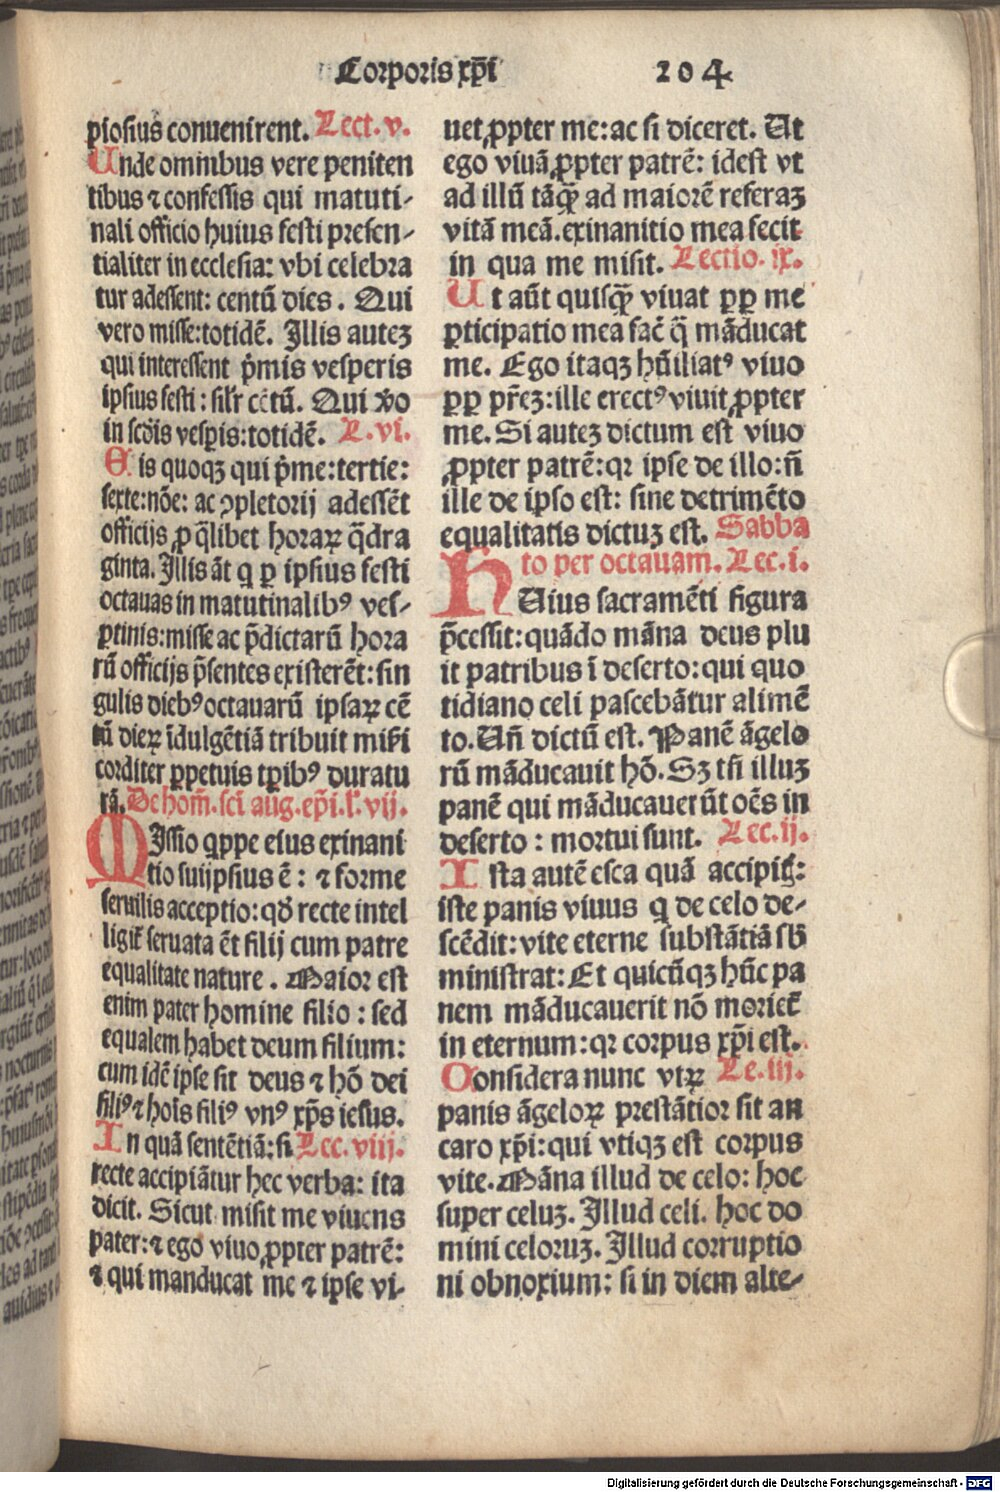 Corporis xp̄i 204
piosius conuenirent. Lect. v.
Unde omnibus vere peniten
tibus ⁊ confessis qui matuti-
nali officio huius festi presen-
tialiter in ecclesia: vbi celebra
tur adessent: centū dies. Qui
vero misse: totidē. Illis autez
qui interessent p̄mis vesperis
ipsius festi: silr̄ cētū. Qui v̄o
in scd̄is vesꝑis: totidē. L. vi.
Eis quoqꝫ qui p̄me: tertie:
sexte: nōe: ac ꝯpletorij adessēt
officijs ꝓ q̄libet horaꝝ q̄dra
ginta. Illis āt q ꝑ ipsius festi
octauas in matutinalibꝰ ves-
ꝑtinis: misse ac p̄dictarū hora
rū officijs p̄sentes existerēt: sin
gulis diebꝰ octauarū ipsaꝝ cē
tū dieꝝ īdulgētiā tribuit mīki
corditer ꝑpetuis tꝑibꝰ duratu
rā. De hom̄. sci aug. ep̄i. l̄. vij.
Missio qppe eius exinani
tio suijpsius ē: ⁊ forme
seruilis acceptio: qđ recte intel
ligit̄ seruata ēt filij cum patre
equalitate nature. Maior est
enim pater homine filio: sed
equalem habet deum filium:
cum idē ipse sit deus ⁊ hō dei
filiꝰ ⁊ hoīs filiꝰ vnꝰ xp̄s iesus.
In quā sentētiā: si Lec. viij.
recte accipiātur hec verba: ita
dicit. Sicut misit me viuens
pater: ⁊ ego viuo ꝓpter patrē:
⁊ qui manducat me ⁊ ipse vi-
uet ꝓpter me: ac si diceret. Ut
ego viuā ꝓpter patrē: idest vt
ad illū tāq̄ꝫ ad maiorē referaꝫ
vitā meā. exinanitio mea fecit
in qua me misit. Lectio. ix.
Ut aūt quisq̄ꝫ viuat ꝑꝑ me
ꝑticipatio mea fac̄ q̄ māducat
me. Ego itaqꝫ hūiliatꝰ viuo
ꝑꝑ pr̄eꝫ: ille erectꝰ viuit ꝓpter
me. Si auteꝫ dictum est viuo
ꝓpter patrē: qꝛ ipse de illo: n̄
ille de ipso est: sine detrimēto
equalitatis dictuꝫ est. Sabba
to per octauam. Lec. i.
HUius sacramēti figura
p̄cessit: quādo māna deus plu
it patribus ī deserto: qui quo
tidiano celi pascebātur alimē
to. Un̄ dictū est. Panē āgelo
rū māducauit hō. Sꝫ tn̄ illuꝫ
panē qui māducauerūt oēs in
deserto: mortui sunt. Lec. ij.
Ista autē esca quā accipit̄:
iste panis viuus q de celo de-
scēdit: vite eterne substātiā sb̄
ministrat: Et quicūqꝫ hūc pa
nem māducauerit nō moriet̄
in eternum: qꝛ corpus xp̄i est.
Considera nunc vtꝝ Le. iij.
panis āgeloꝝ prestātior sit an
caro xp̄i: qui vtiqꝫ est corpus
vite. Māna illud de celo: hoc
super celuꝫ. Illud celi. hoc do
mini celoruꝫ. Illud corruptio
ni obnoxium: si in diem alte-
Digitalisierung gefördert durch die Deutsche Forschungsgemeinschaft - DFG